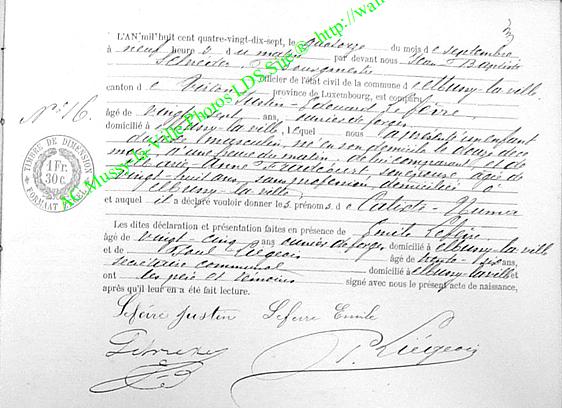 3
L'AN mil huit cent quatre-vingt-dix-sept, le quatorze du mois de septembre
à neuf heures du matin par devant nous Jean Baptiste
Schneider Bourgmestre
Officier de l'état civil de la commune de Mussy-la-ville
canton de Virton province de Luxembourg, est comparu
Nº 16. Justin Edouard Lefèvre,
âgé de vingt-sept ans, ouvrier de forges
domicilié à Mussy-la-ville, Lequel nous a présenté un enfant
de sexe masculin, né en son domicile le douze de ce
mois, à une heure du matin, de lui comparant et de
Marie son épouse, âgée de
vingt-huit ans, sans profession, domiciliée à
Mussy-la-ville,
et auquel il a déclaré vouloir donner les prénoms de Calixte-Numa
Les dites déclaration et présentation faites en présence de Emile Lefèvre
âgé de vingt-cinq ans ouvrier de forges domicilié à Mussy-la-ville
et de Paul Liégeois âgé de trente- ans
secrétaire communal domicilié à Mussy-la-ville et
ont les père et témoins signé avec nous le présent acte de naissance,
après qu'il leur en a été fait lecture.
Lefèvre Justin Lefevre Emile
P. Liégeois
TIMBRE DE DIMENSION
1 Fr.
30 C.
FORMAAT
AC Mussy-la-Ville Photos LDS Sur : @ http://wa